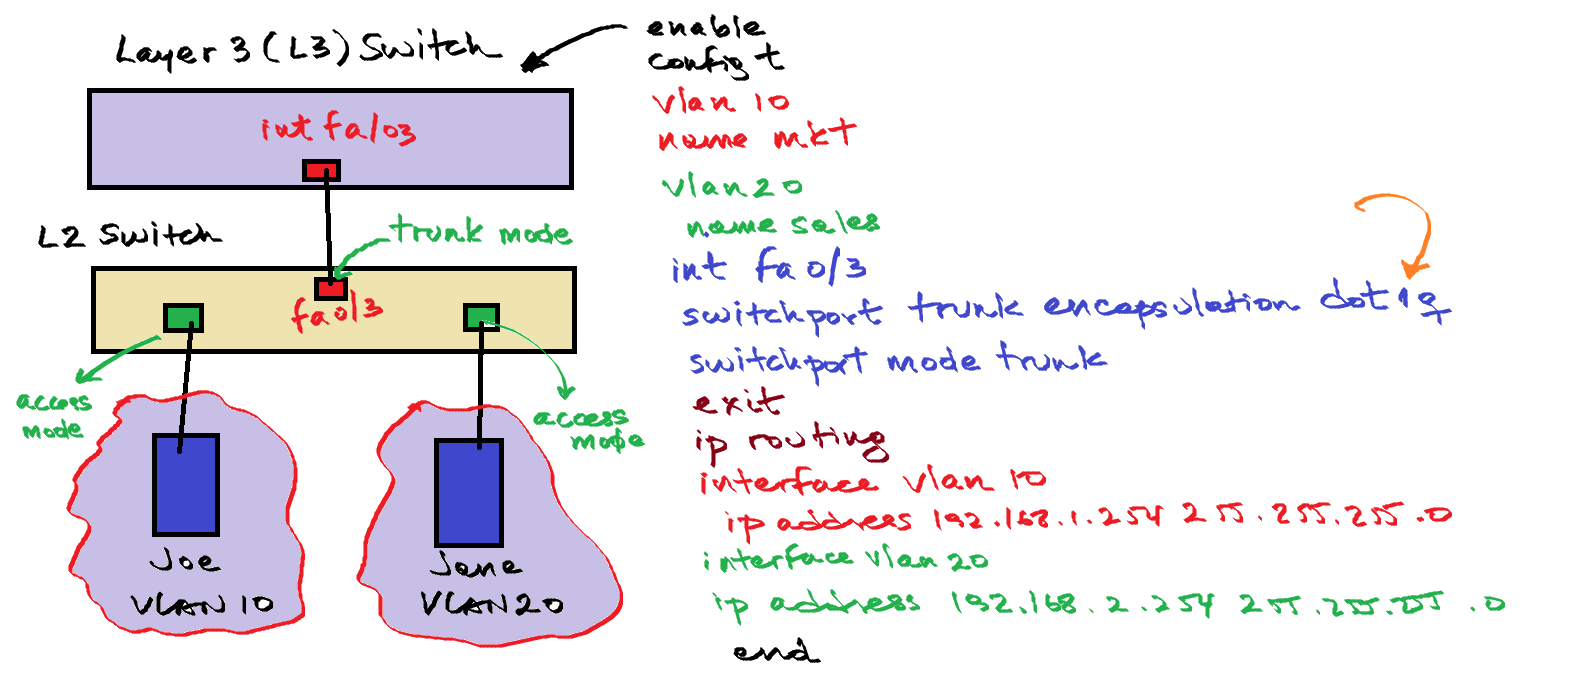 Layer 3 (L3) Switch
int fa/03
L2 Switch
trunk mode
fa0/3
access
mode
access
mode
Joe
VLAN 10
Jane
VLAN 20
enable
config t
vlan 10
name mkt
vlan 20
name sales
int fa 0/3
switchport trunk encapsulation dot1q
switchport mode trunk
exit
ip routing
interface vlan 10
ip address 192.168.1.254 255.255.255.0
interface vlan 20
ip address 192.168.2.254 255.255.255.0
end